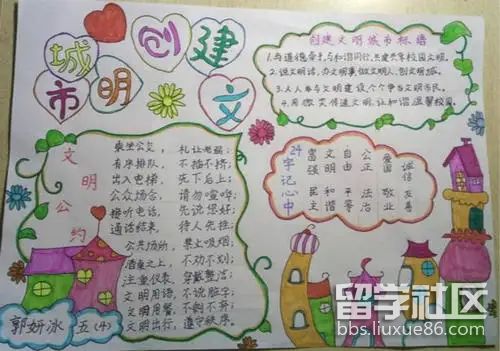 创建文明城市
创建文明城市标语
1.与道德牵手,与和谐同行,共建共享校园文明。
2.说文明话,办文明事,做文明人,创文明城。
3.人人参与文明建设 个个争当文明市民。
4.用微笑传递文明,让和谐温馨校园。
文明公约
乘坐公交, 礼让老弱;
有序排队, 不插不挤;
出入电梯, 先下后上;
公众场合, 请勿喧哗;
接听电话, 先说您好;
通话结束, 待人先挂;
公共场所, 禁止吸烟;
酒桌之上, 不劝不划;
注重仪表, 穿戴整洁;
文明用语, 不说脏字;
文明用餐, 不剩不弃;
文明出行, 遵守秩序。
24字记心中
富强 民主
文明 和谐
自由 平等
公正 法治
爱国 敬业
诚信 友善
郭妍冰 五(4)
留学社区
bbs.liuxue86.com